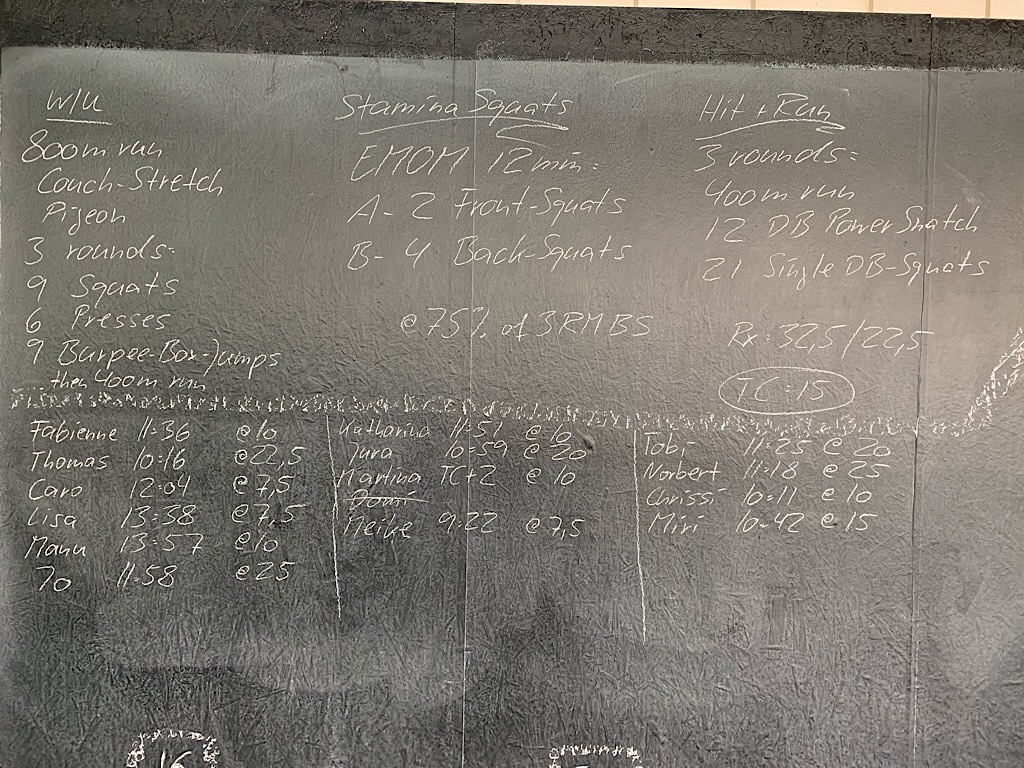 W/U
800m run
Couch-Stretch
Pigeon
3 rounds:
9 Squats
6 Presses
9 Burpee-Box-Jumps
... then 400m run
Stamina Squats
EMOM 12min:
A- 2 Front-Squats
B- 4 Back-Squats
@ 75% of 3RM BS
Hit + Run
3 rounds:
400m run
12 DB Power Snatch
21 Single DB-Squats
Rx: 32,5/22,5
TC=15
Fabienne 11:36 @10
Thomas 10:16 @22,5
Caro 12:04 @7,5
Lisa 13:38 @7,5
Manu 13:57 @10
Jo 11:58 @25
Katharina 11:51 @ 10
Jura 10:59 @ 20
Martina TC+2 @ 10
Domi
Meike 9:22 @7,5
Tobi 11:25 @ 20
Norbert 11:18 @ 25
Chrissi 10:11 @ 10
Miri 10:42 @ 15
16